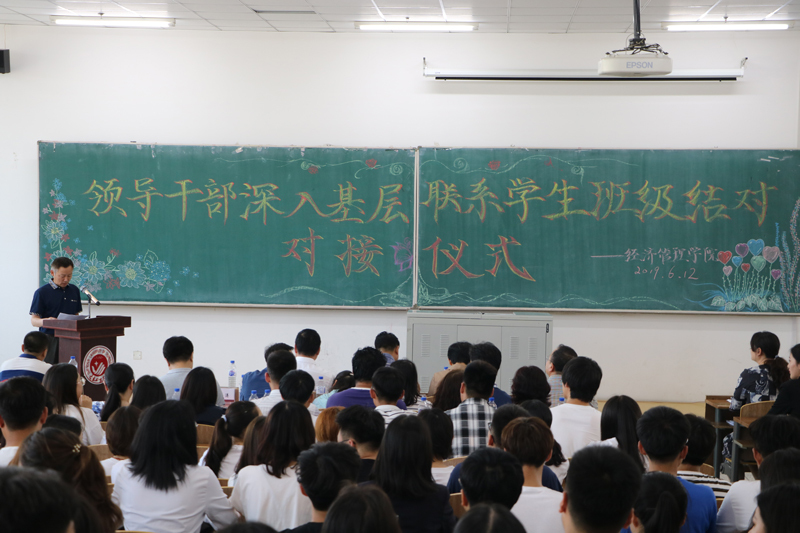 EPSON
领导干部深入基层联系学生班级结对
对接仪式
——经济管理学院
2019.6.12